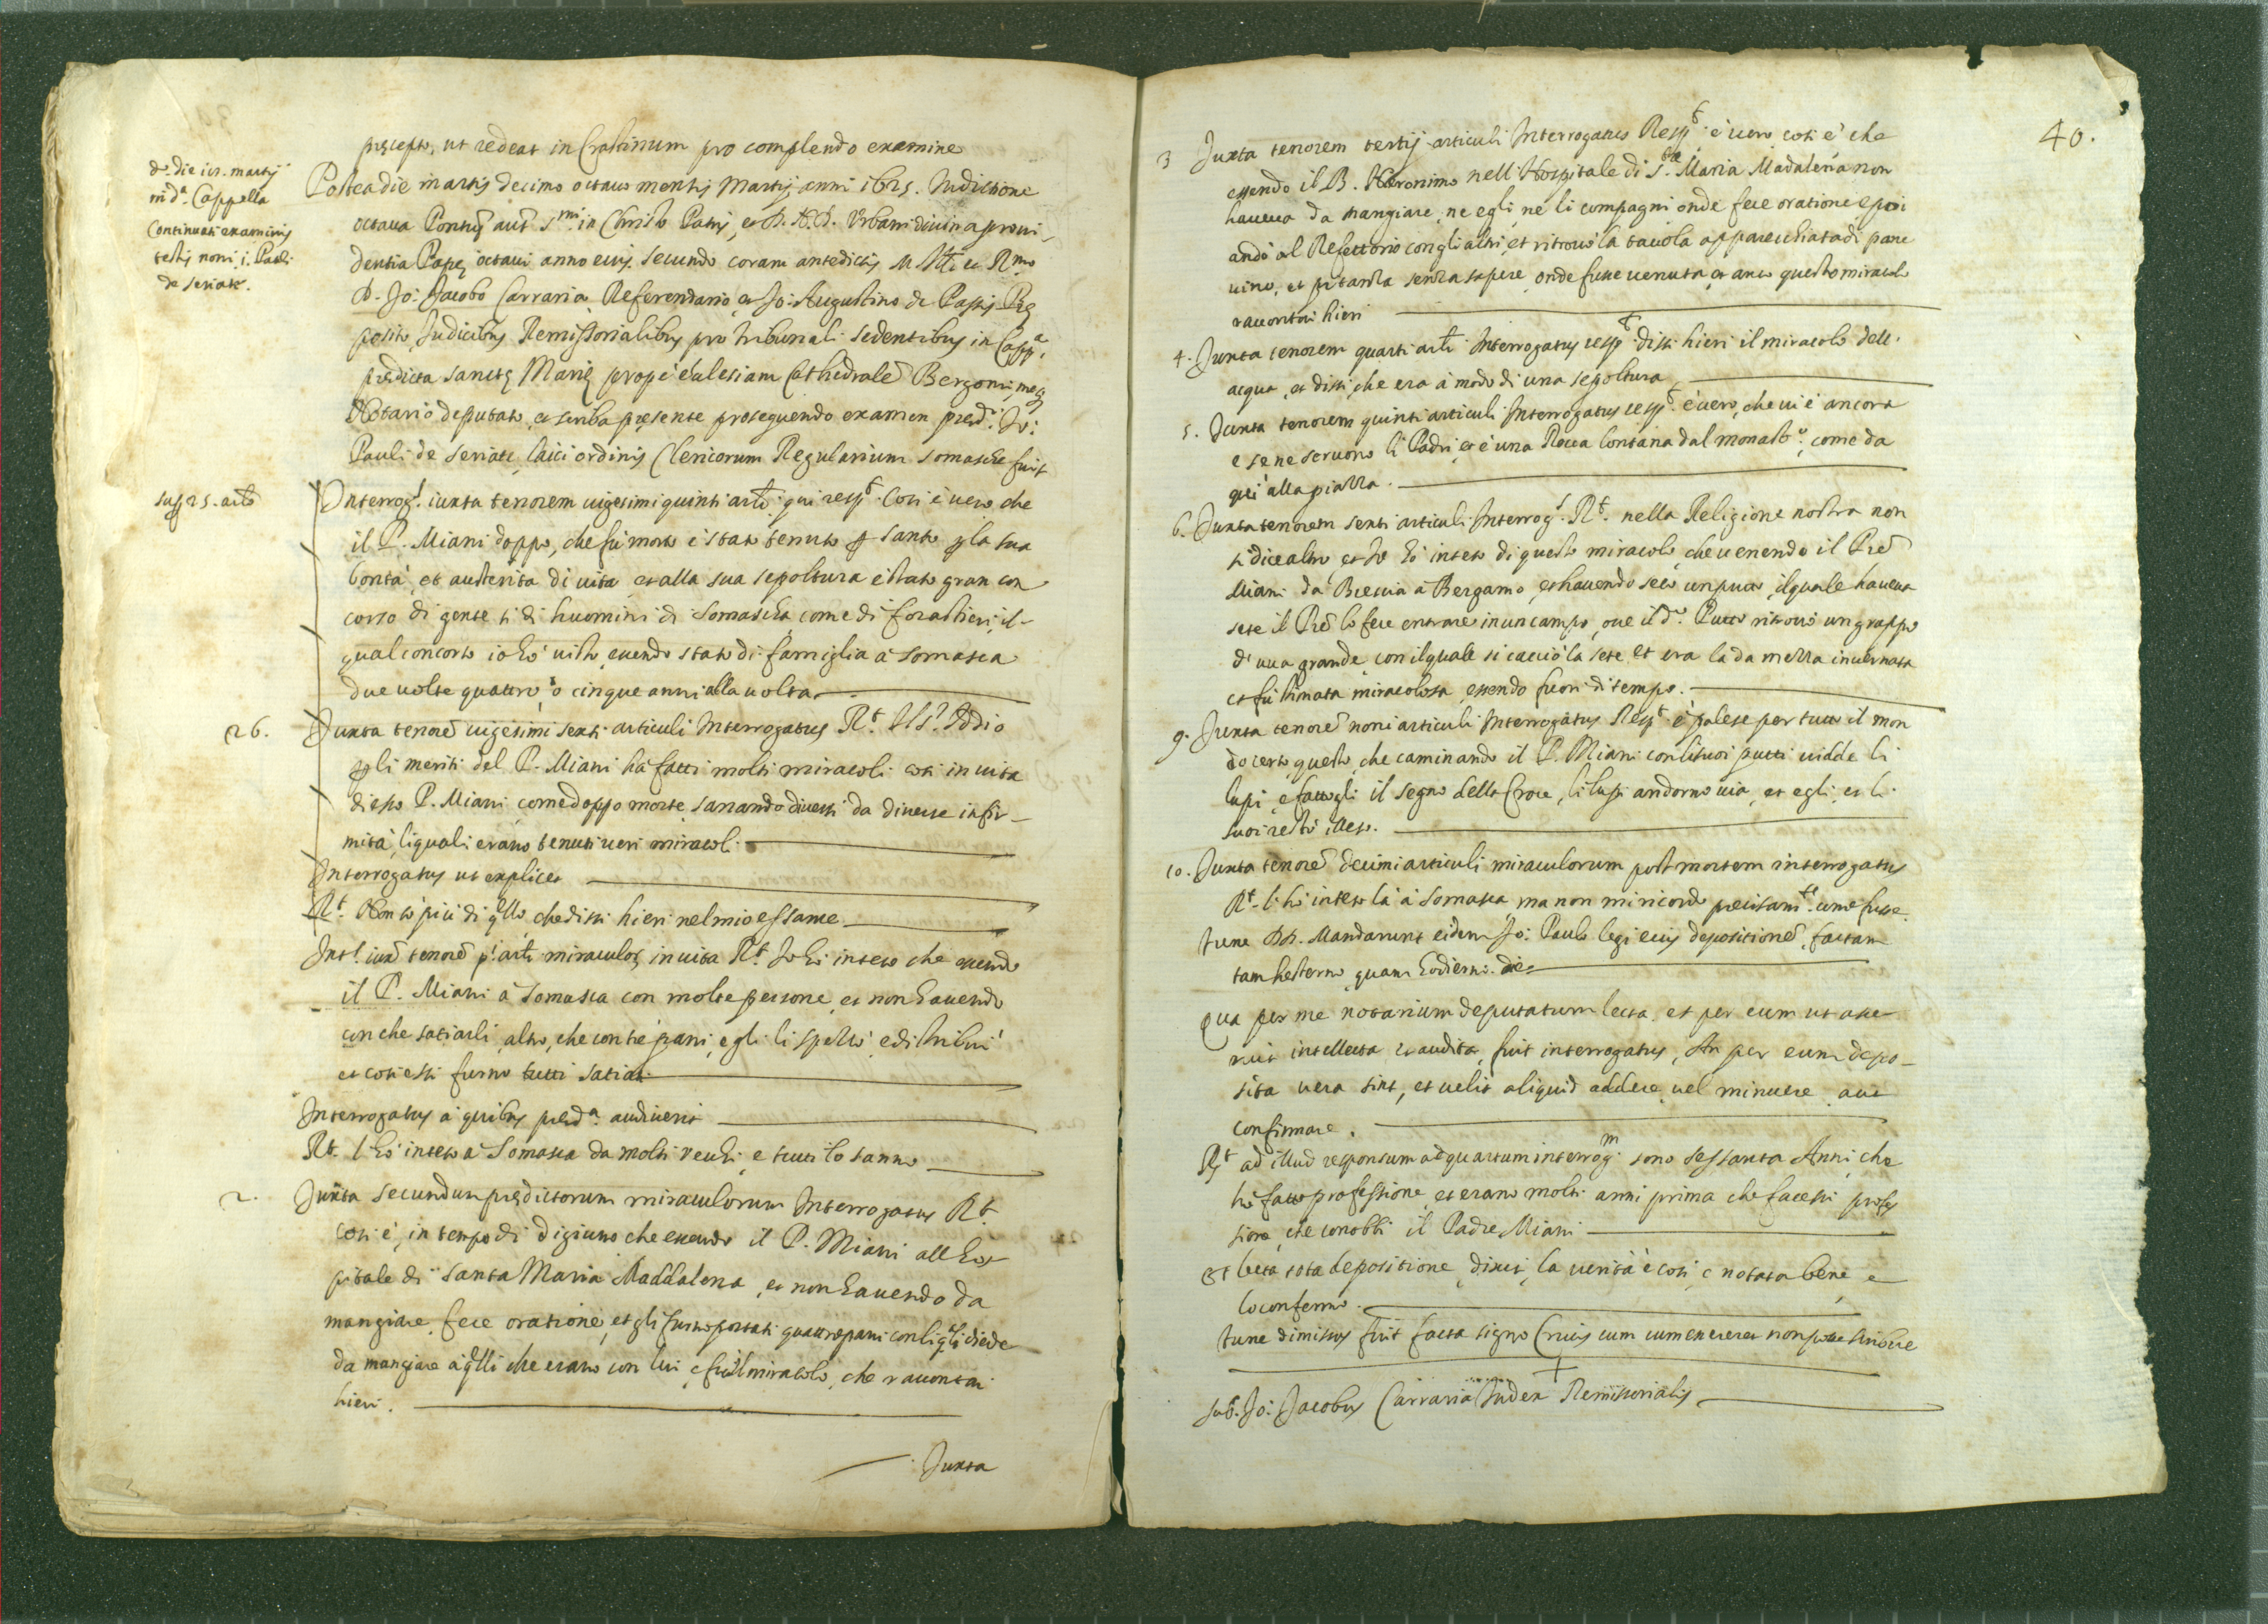 pręcepto, ut redeat in Crastinum pro complendo examine
de die 18. martij
in d.ª Cappella
Continuati examinis
testis noni i. Pauli
de seriate.
Postea die martis decimo octavo mensis Martij anni 1625. Indictione
octava Pontus aut s.mi in Christo Patris, et D. N. D. Urbani divina provi-
dentia Papę octavi anno eius secundo coram antedictis M. Ill.i et R.mo
D. Jo: Jacobo Carraria Referendario et Jo: Augustino de Passis Prę
posito Judicibus Remissorialibus pro tribunali sedentibus in Capp.ª
prędicta sanctę Marię prope eccłesiam Cathedrale Bergomi, meq
Notario deputato, et scriba pręsente prosequendo examen pred.i Jo:
Pauli de seriate, laici ordinis Clericorum Regularium somaschę fuit
sup 25. arto
Interrog.s iuxta tenorem vigesimi quinti arti. qui resp.t Cosi è vero che
il P. Miani doppo, che fu morto è stato tenuto p santo p la sua
bontà, et austerita di vita, et alla sua sepoltura è stato gran con
corso di gente si di huomini di Somascha come di forastieri, il-
qual concorso io hò visto, essendo stato di famiglia à somasca
due volte quattro, ò cinque anni alla volta.
26.
Juxta tenore vigesimi sexti articuli Interrogatus R.t Il s.r Iddio
p li meriti del P. Miani hà fatti molti miracoli cosi in vita
di esso P. Miani come doppo morte, sanando diversi da diverse infir-
mità, li quali erano tenuti veri miracoli.
Interrogatus ut explicet
R.t Non sò più di qllo, che dissi hieri nel mio essame
Int.s iux tenore p.i arti miraculor, in vita R.t Jo hò inteso che essendo
il P. Miani à Somasca con molte persone, et non havendo
con che satiarli altro, che con tre pani, egli li spezzò, e distribui
et cosi essi furno tutti satiati
Interrogatus à quibus pred.ª audiverit
R.t l'hò inteso à Somasca da molti vecchi, e tutti lo sanno
2.
Juxta secundum prędictorum miraculorum Interrogatus R.t
cosi è, in tempo di digiuno che essendo il P. Miani all hos
pitale di santa Maria Maddalena, et non havendo da
mangiare, fece oratione, et gli furno portati quattro pani con li qli diede
da mangiare à qlli che erano con lui, e fù il miracolo, che raccontai
hieri.
Juxta
40.
3 Juxta tenorem tertij articuli Interrogatus Resp.t è vero cosi è, che
essendo il B. Hieronimo nell'Hospitale di S.ta Maria Madalena non
haveva da mangiare, ne egli, ne li compagni onde fece oratione, e poi
andò al Refettorio con gli altri, et ritrovò la tavola apparecchiata di pane
vino, et pitanza senza sapere onde fusse venuta, et anco questo miracolo
raccontai hieri
4. Juxta tenorem quarti arti Interrogatus resp.t dissi hieri il miracolo dell.
acqua, et dissi, che era à modo di una sepoltura
5. Juxta tenorem quinti articuli Interrogatus resp.t è vero, che vi è ancora
e se ne servono li Padri, et è una Rocca lontana dal monast.o come da
qui alla piazza.
6. Juxta tenorem sexti articuli Interrog.s R.t nella Religione nostra non
si dice altro, et Jo hò inteso di questo miracolo, che venendo il Pre
Miani da Brescia à Bergamo, et havendo seco un putto, il quale haveva
sete il Pre lo fece entrare in un campo, ove il d.o Putto ritrovò un grappo
d'uva grande, con il quale si cacciò la sete, et era la da mezza invernata
et fù stimata miracolosa, essendo fuori di tempo.
9. Juxta tenore noni articuli Interrogatus Resp.t è palese per tutto il mon
do certo questo, che caminando il P. Miani con li suoi putti vidde li
lupi, e fattogli il segno della Croce, li lupi andorno via, et egli, et li
suoi restò illeso.
10. Juxta tenore decimi articuli miraculorum post mortem interrogatus
R.t l'hò inteso là à Somasca, ma non mi ricordo precisam.te come fusse.
tunc DD. Mandarunt eidem Jo: Paulo legi eius depositione, factam
tam hesterno, quam hodierno die
Qua per me notarium deputatum lecta, et per eum ut asse
ruit intellecta et audita, fuit interrogatus, An per eum depo-
sita vera sint, et velit aliquid addere, vel minuere, aut
confirmare.
R.t ad illud responsum ad quartum interrog.m sono sessanta Anni, che
hò fatto professione, et erano molti anni prima che facessi profes
sione, che conobbi il Padre Miani
Et lecta tota depositione, dixit, la verità è cosi, è notata bene, e
lo confermo.
tunc dimissus fuit facto signo Crucis cum cum nesciret non scribere
+
sub. Jo: Jacobus Carraria Judex Remissorialis